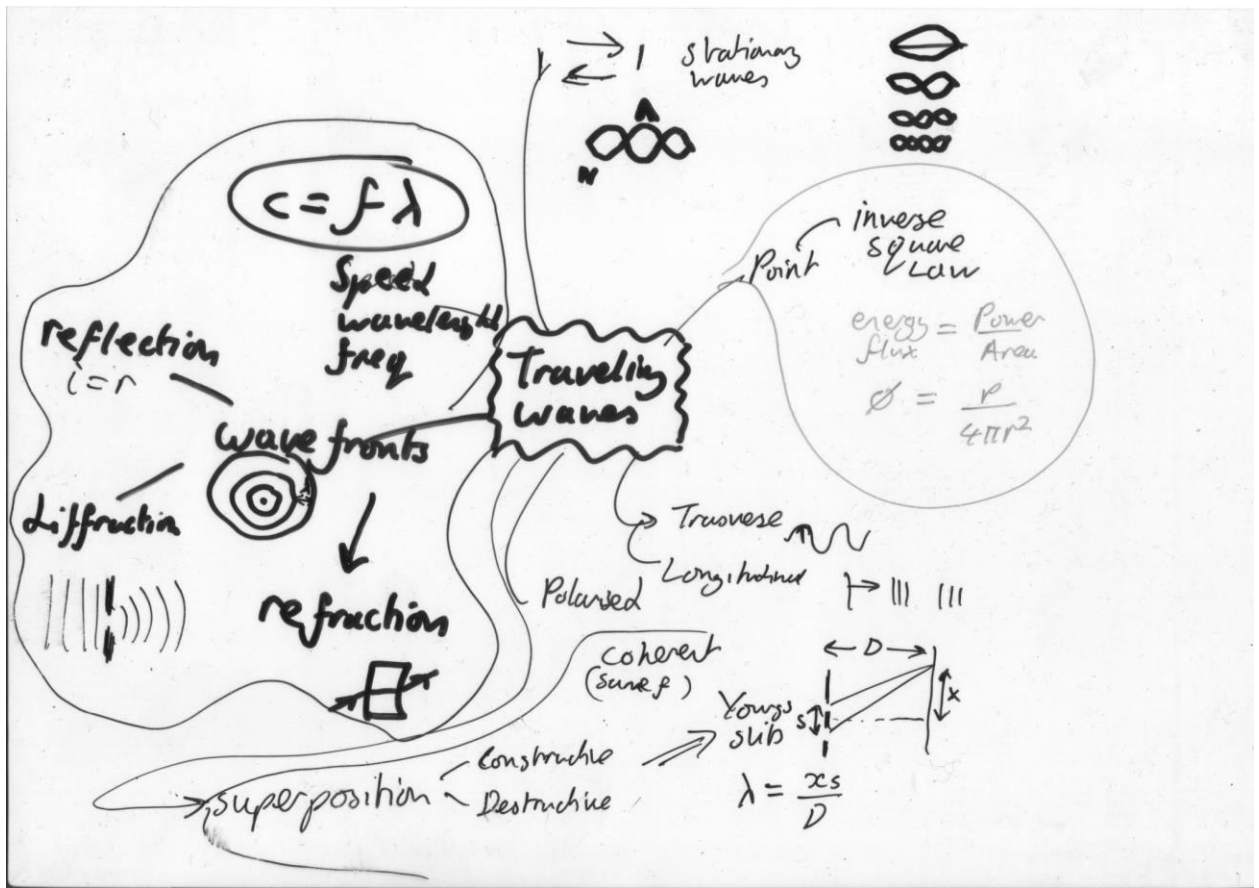 stationary
waves
A
N
c = f λ
Speed
wavelenght
freq
reflection
i = r
wave fronts
diffraction
refraction
Traveling
waves
Point
inverse
square
Law
energy
flux
= Power
Area
Ø = P
4πr²
Trasverse
Longitudinal
Polarised
coherent
(same f)
superposition
Constructive
Destructive
Youngs
slits
s
D
x
λ = xs
D